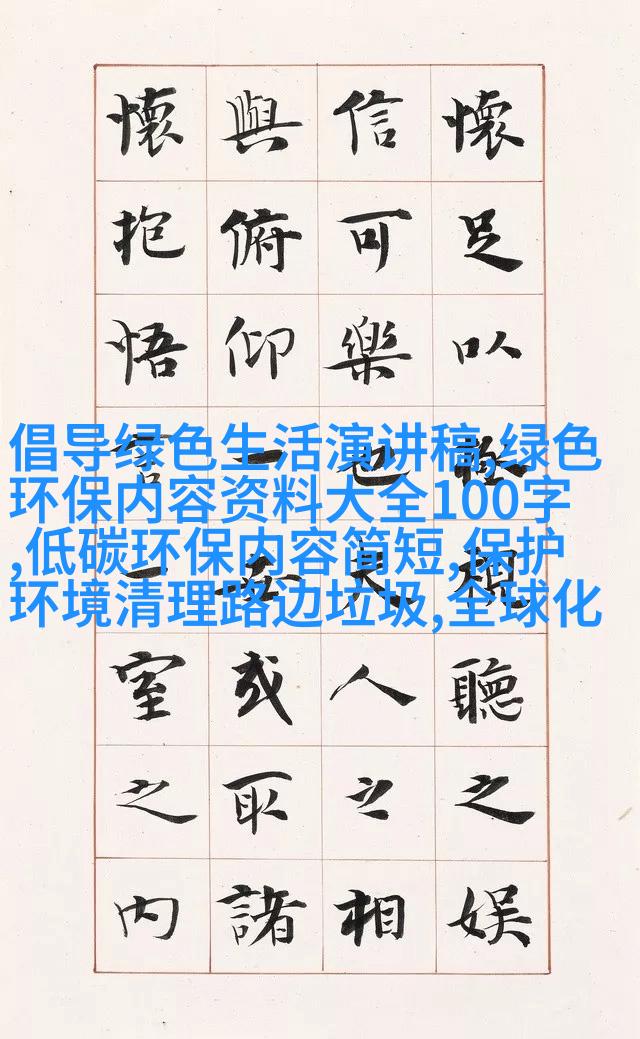 懷足以極視聽之娛
信可樂也夫人之相
與俯仰一世或取諸
懷抱悟言一室之内
倡导绿色生活演讲稿,绿色
环保内容资料大全100字
,低碳环保内容简短,保护
环境清理路边垃圾,全球化